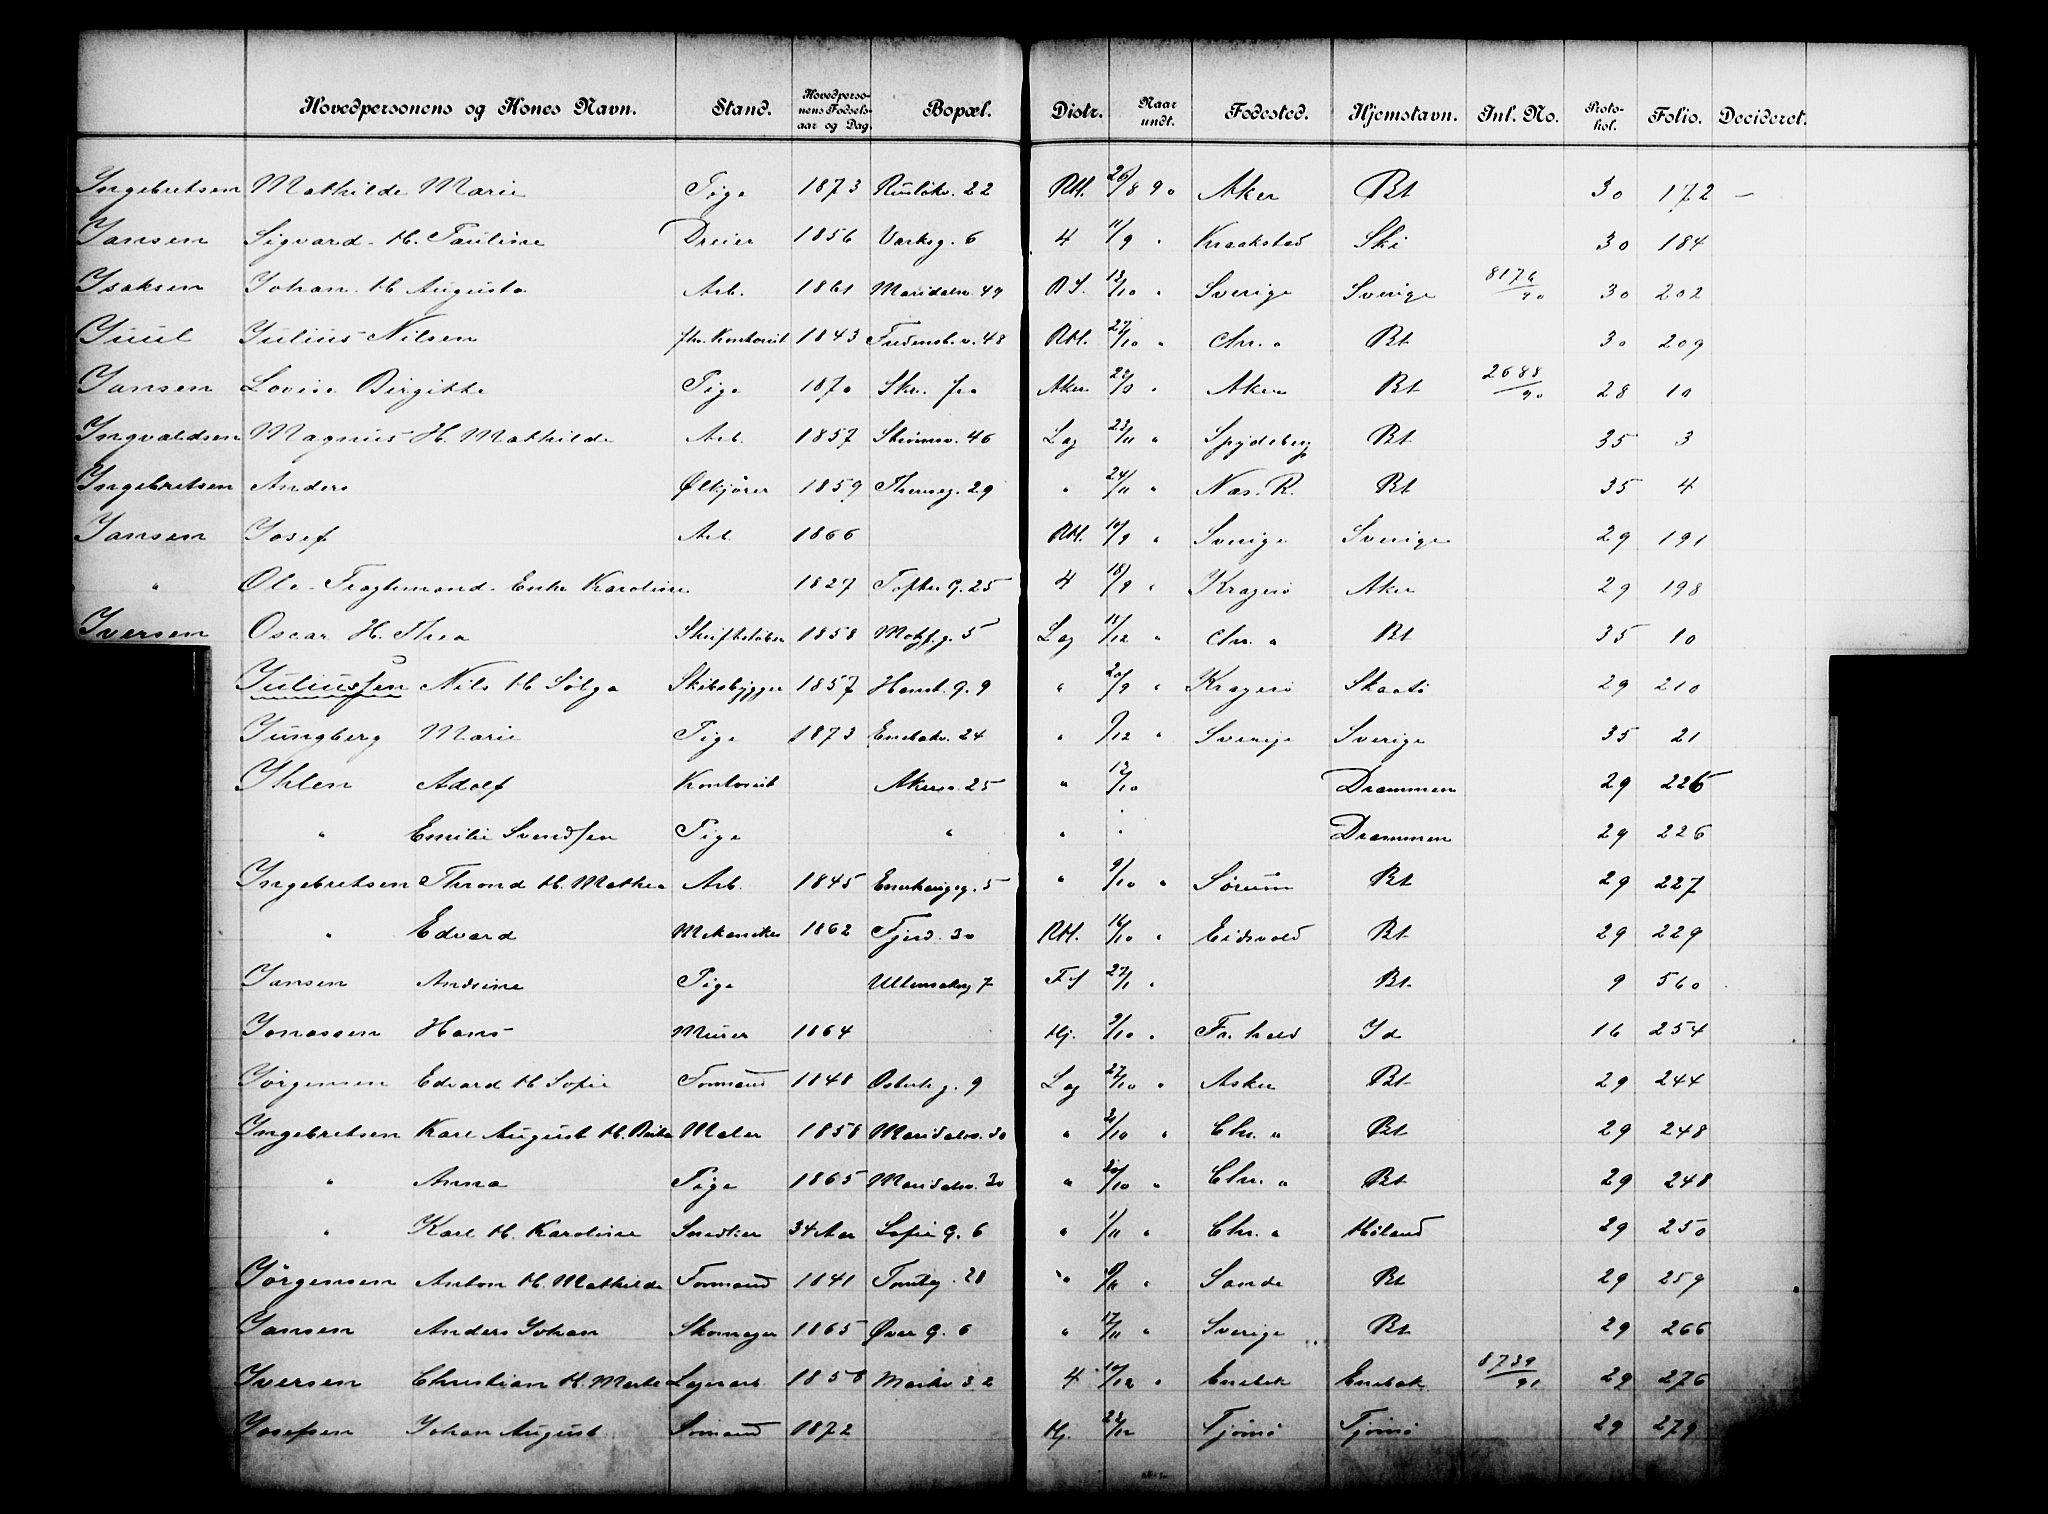 Hovedpersonens og Kones Navn. Stand. Hovedpersonens Fødselsaar og Dag. Bopæl. Distr. Naar undt. Fødested. Hjemstavn. Inl. No. Protokol. Folio. Decideret.
Ingebretsen Mathilde Marie Pige 1873 22 Rst. 26/8 90 Aker Bt 30 172 —
Jansen Sigvard H. Pauline Dreier 1856 Verksg. 6 4 11/9 " Kraakstad Ski 30 184
Isaksen Johan H. Augusta Arb. 1861 Maridalsv. 49 B S. 13/10 " Sverige Sverige 8176/90 30 202
Juul Julius Nilsen fhv. Kontorist 1843 Fredensb.v. 48 Rst. 27/10 " Chr. a Bt 30 209
Jansen Lovise Birgitte Pige 1870 Aker " Aker Bt 2688/90 28 10
Ingvaldsen Magnus H. Mathilde Arb. 1857 46 Lag 23/11 " Spydeberg Bt 35 3
Ingebretsen Anders Ølkjører 1859 Thereseg. 29 " 24/11 " Næs. R. Bt 35 4
Jansen Josef Arb. 1866 Rst. 10/9 " Sverige Sverige 29 191
" Ole Enke Karoline 1827 Tofteg. 25 4 18/9 " Kragerø Aker 29 198
Iversen Oscar H. Thea Skriftstøber 1858 Motzf.g. 5 Lag 18/12 " Chr. a Bt 35 10
Juliussen Nils H. Sølga Skibsbygger 1857 Hamb. g. 9 " 20/9 " Kragerø Skaatø 29 210
Jungberg Marie Pige 1873 Enebakv. 24 " 9/12 " Sverige Sverige 35 21
Ihlen Adolf Kontorist Akersv. 25 " 12/10 Drammen 29 226
" Emilie Svendsen Pige " " " Drammen 29 226
Ingebretsen Thrond H. Mathea Arb. 1845 Enerhaugg. 5 " 9/10 " Sørum Bt 29 227
" Edvard Mekaniker 1862 30 Rst. 16/10 " Eidsvold Bt 29 229
Jansen Andrine Pige Ullensakerg 7 F S 27/1 " Bt 9 560
Jonassen Hans Murer 1864 Hj. 9/10 " Fr. hald Id 16 254
Jørgensen Edvard H. Sofie Tomand 1848 Osterh. g. 9 Lag 27/10 " Asker Bt 29 244
Ingebretsen Karl August H. Maler 1858 Maridalsv. 30 " 31/10 " Chr. a Bt 29 248
" Anna Pige 1865 Maridalsv. 30 " 30/10 " Chr. a Bt 29 248
" Karl H. Karoline Snedker 34 Aar Sofie g. 6 " 1/11 " Chr. a Høland 29 250
Jørgensen Anton H. Mathilde Tomand 1841 Tomteg. 28 " " Sande Bt 29 259
Jansen Anders Johan Skomager 1865 Øvre g. 6 " 17/11 " Sverige Bt 29 266
Iversen Christian H. Marte Lagerarb. 1858 Markv. 32 4 10/12 " Enebak Enebak 8739/91 29 276
Josefsen Johan August Sømand 1872 Hj. 22/12 Tjømø Tjømø 29 279